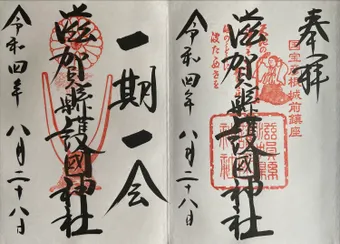 奉拝
国宝彦根城前鎮座
滋賀縣護國神社
滋賀縣
護國
神社
令和四年 八月二十八日
一期一会
滋賀縣護國神社
令和四年 八月二十八日